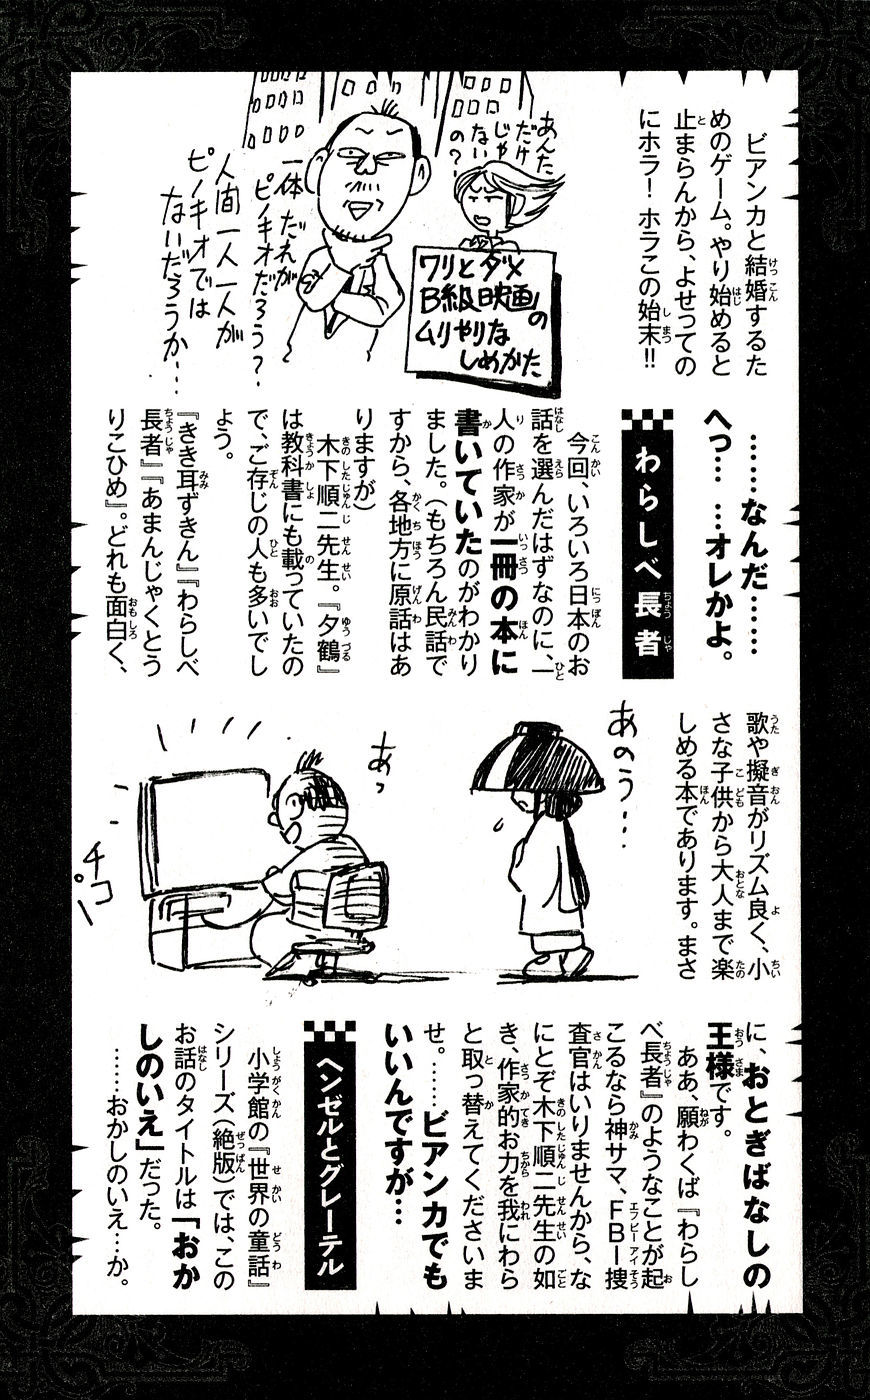 ビアンカと結婚するた
めのゲーム。やり始めると
止まらんから、よせっての
にホラ！ホラこの始末!!
あんた
だけ
じゃ
ない
の？
ワリとダメ
B級映画の
ムリやりな
しめかた
一体だれが
ピノキオだろう？
人間一人一人が
ピノキオでは
ないだろうか…
……なんだ……
へっ……オレかよ。
わらしべ長者
今回、いろいろ日本のお
話を選んだはずなのに、一
人の作家が一冊の本に
書いていたのがわかり
ました。（もちろん民話で
すから、各地方に原話はあ
りますが）
木下順二先生。『夕鶴』
は教科書にも載っていたの
で、ご存じの人も多いでし
ょう。
『きき耳ずきん』『わらしべ
長者』『あまんじゃくとう
りこひめ』。どれも面白く、
歌や擬音がリズム良く、小
さな子供から大人まで楽
しめる本であります。まさ
あのう…
あっ
チコーン
に、おとぎばなしの
王様です。
ああ、願わくば『わらし
べ長者』のようなことが起
こるなら神サマ、ＦＢＩ捜
査官はいりませんから、な
にとぞ木下順二先生の如
き、作家的お力を我にわら
と取っ替えてくださいま
せ。……ビアンカでも
いいんですが…
ヘンゼルとグレーテル
小学館の『世界の童話』
シリーズ（絶版）では、この
お話のタイトルは「おか
しのいえ」だった。
……おかしのいえ…か。